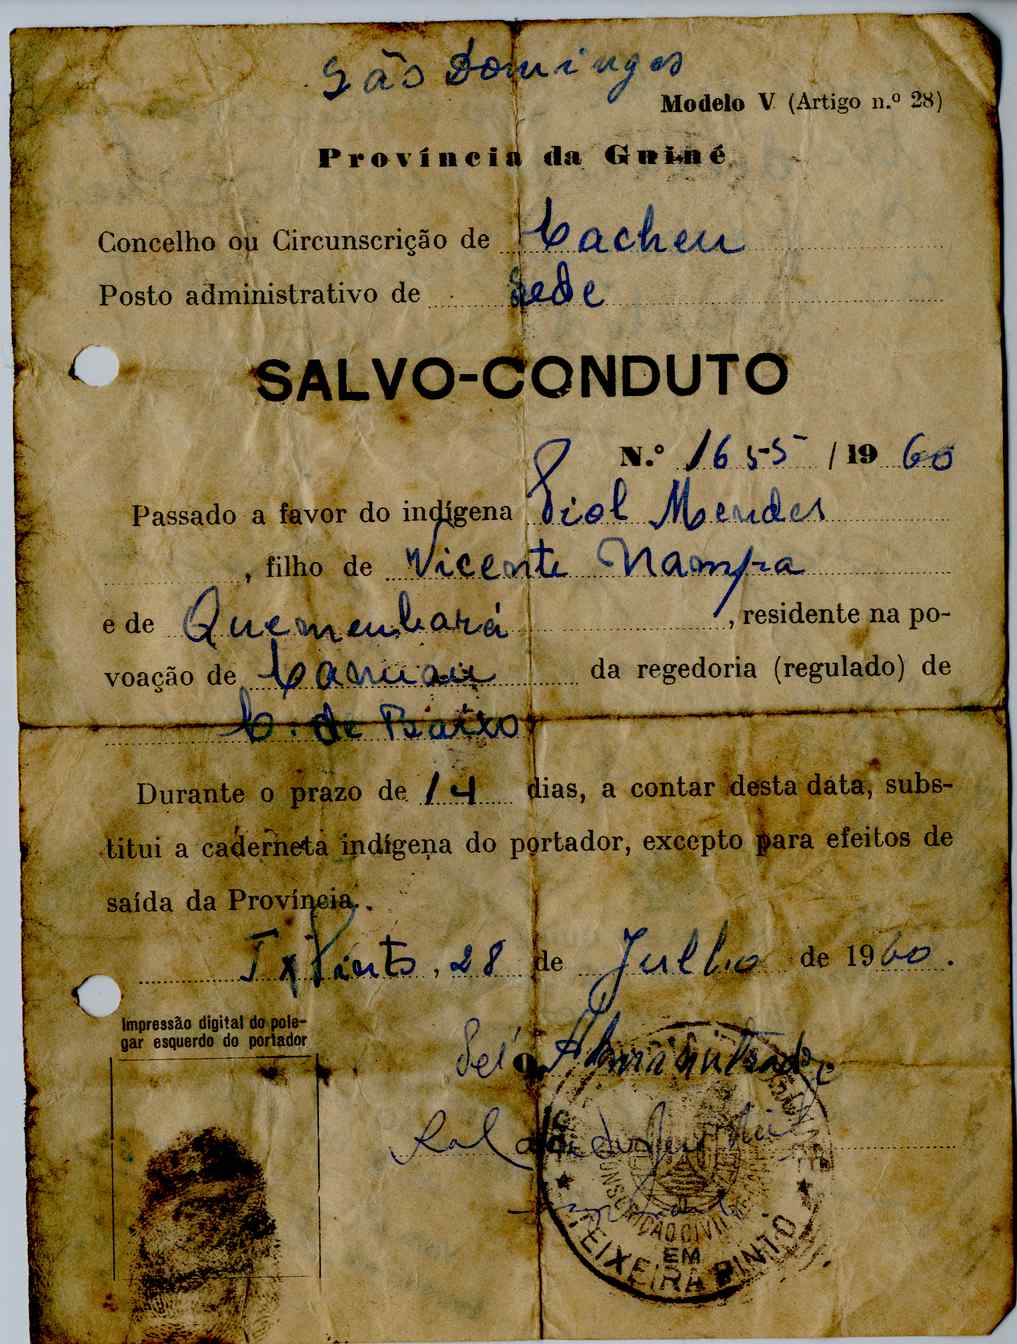 São Domingos
Modelo V (Artigo n.º 28)
Província da Guiné
Concelho ou Circunscrição de Cacheu
Posto administrativo de Sede
SALVO-CONDUTO
N.º 1655 / 1960
Passado a favor do indígena Piol Mendes
, filho de Vicente Nampa
e de Quemenhará, residente na po-
voação de da regedoria (regulado) de
C. de Baixo
Durante o prazo de 14 dias, a contar desta data, subs-
titui a caderneta indígena do portador, excepto para efeitos de
saída da Província.
Tx Pinto, 28 de Julho de 1960.
Impressão digital do pole-
gar esquerdo do portador
Pel' O Administrador
EM
TEIXEIRA PINTO